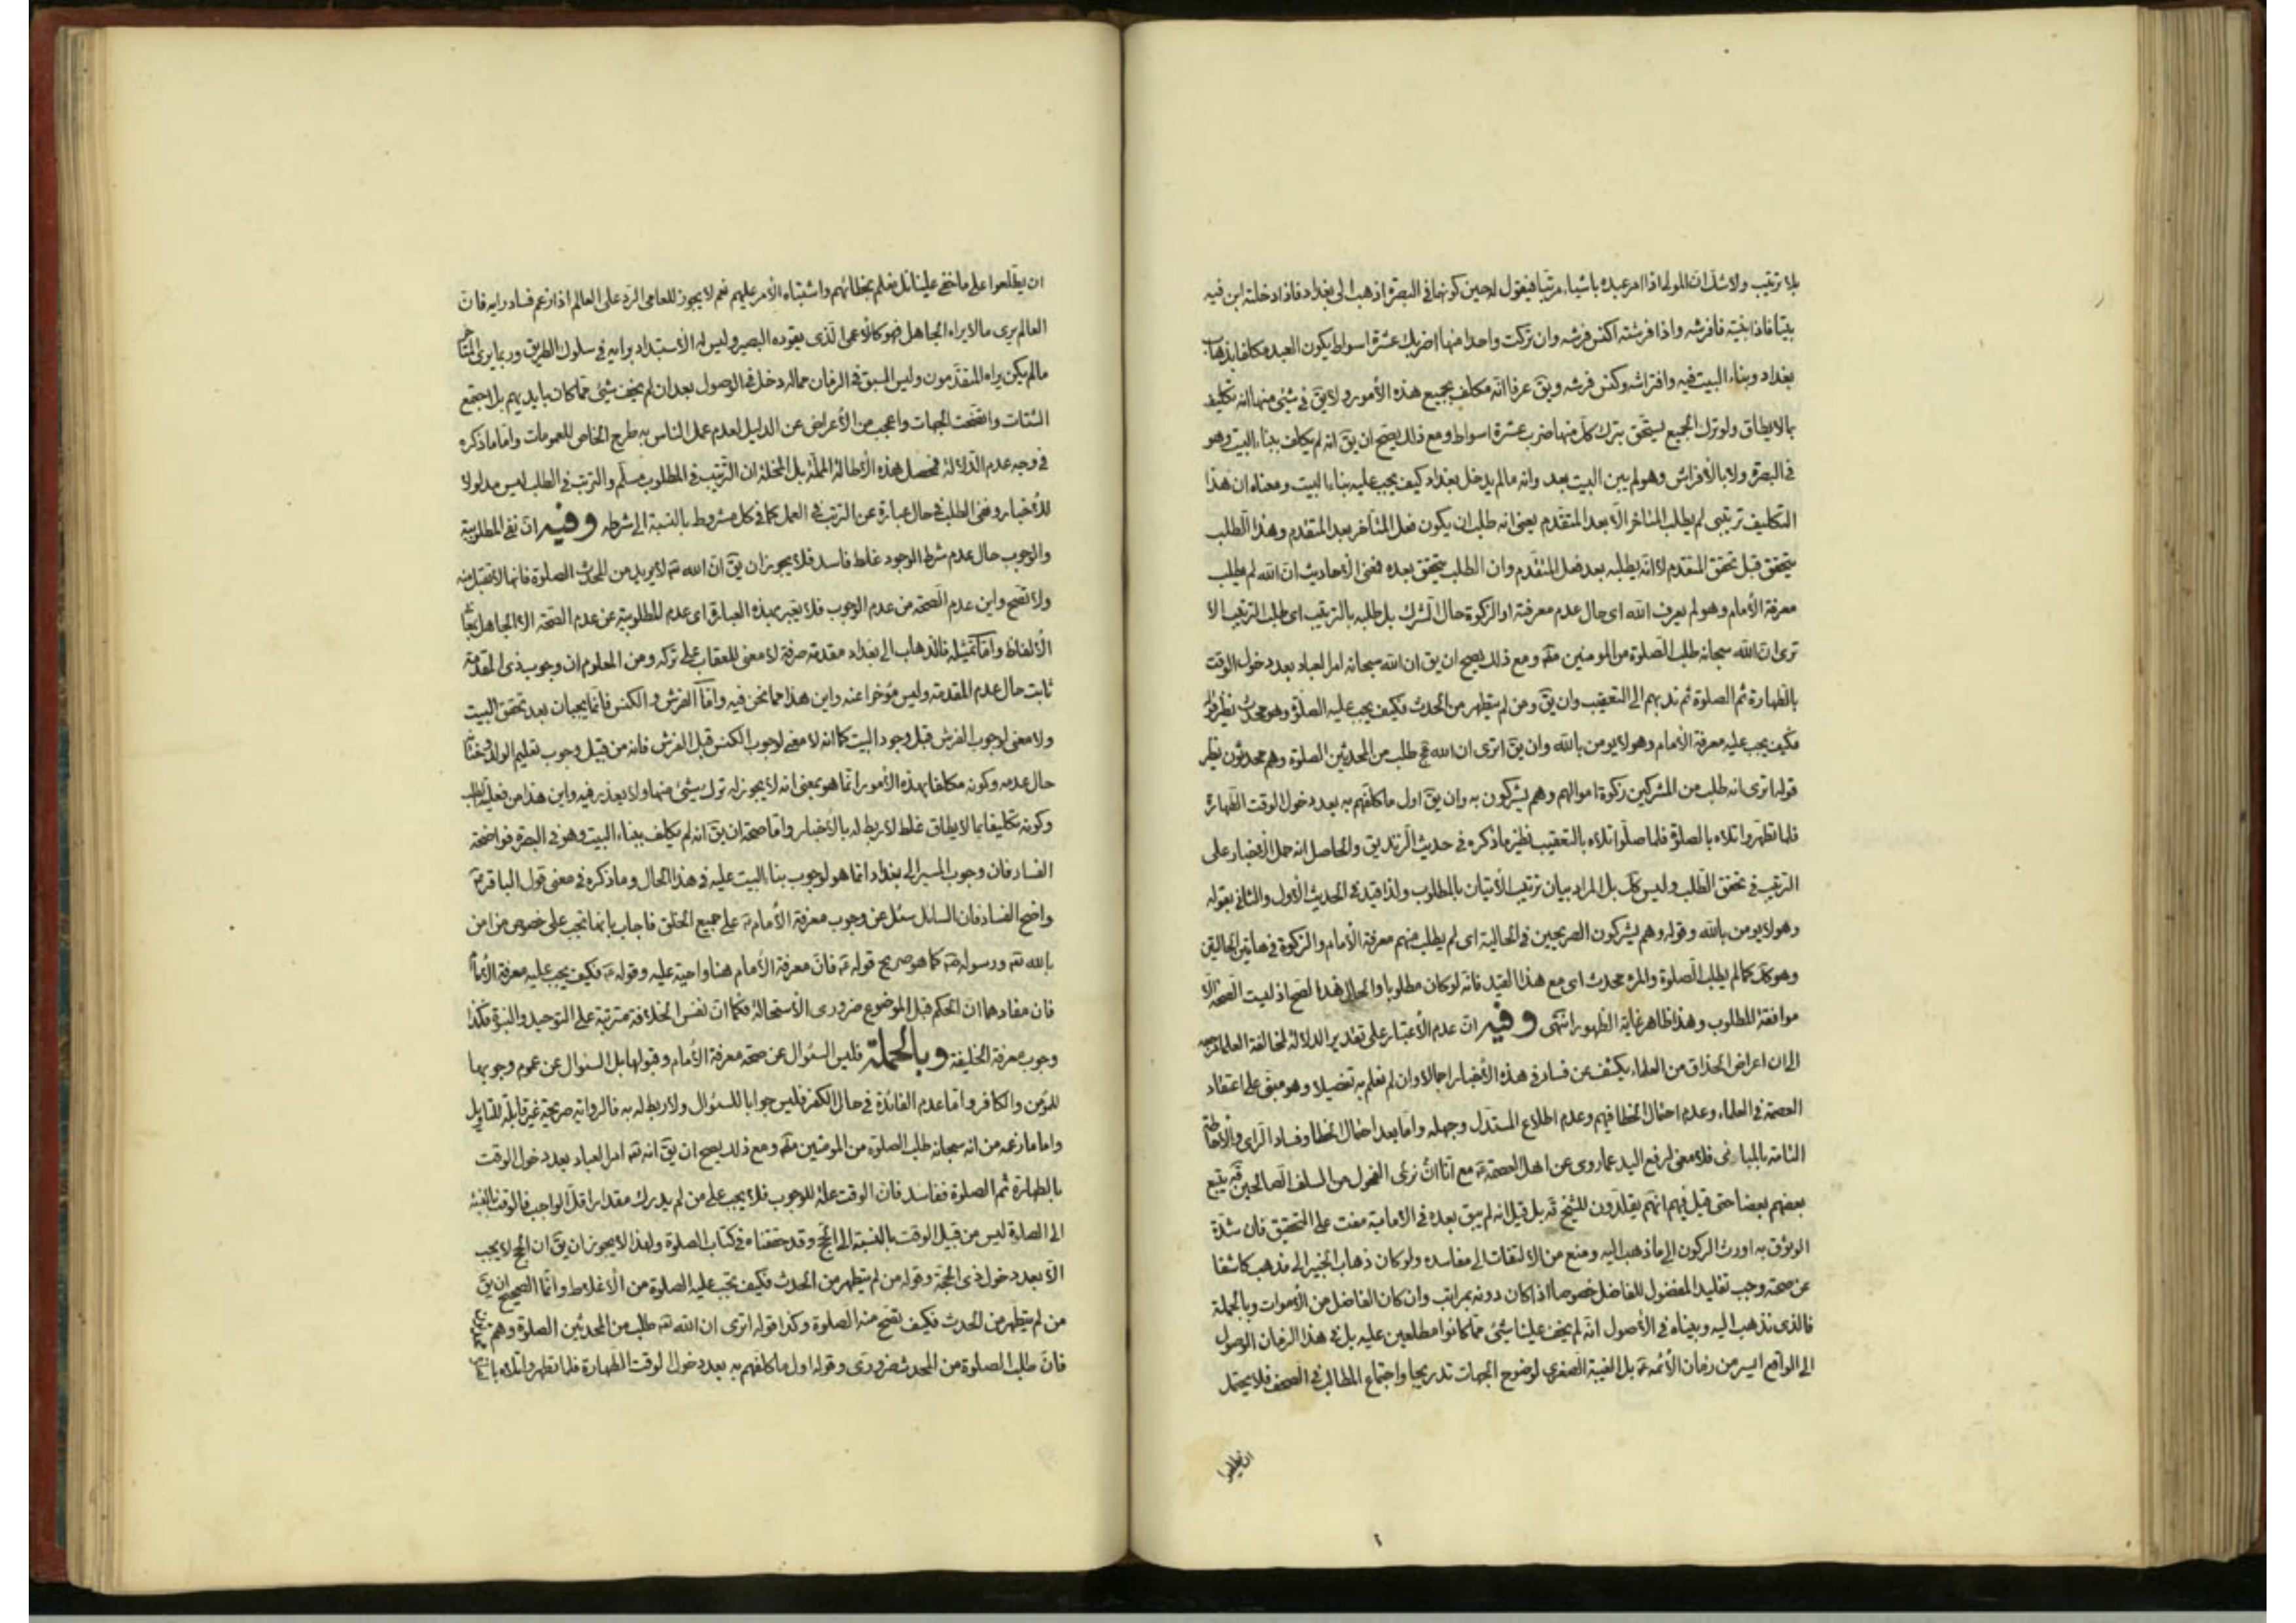 بلا ترتيب ولا شك ان المولى اذا امر عبده باشياء مرتبا فيقول له حين كونهما فى البصرة اذهب الى بغداد فاذا دخلته ابن فيه
بيتا فاذا بنيته فافرشه واذا فرشته اكنس فرشه وان تركت واحدا منها اضربك عشرة اسواط يكون العبد مكلفا بذهاب
بغداد وبناء البيت فيه وافتراشه وكنس فرشه ويق عرفا انه مكلف بجميع هذه الأمور ولا يق فى شئ منها انه تكليف
بما لا يطاق ولو ترك الجميع يستحق بترك كل منها ضرب عشرة اسواط ومع ذلك يصح ان يق انه لم يكلف ببناء البيت وهو
فى البصرة ولا بالأفراش وهو لم يبن البيت بعد وانه ما لم يدخل بغداد كيف يجب عليه بناء البيت ومعناه ان هذا
التكليف ترتيبى لم يطلب المتاخر الا بعد المتقدم يعنى انه طلب ان يكون فعل المتاخر بعد المتقدم وهذا الطلب
يتحقق قبل تحقق المقدم لا انه يطلبه بعد فعل المتقدم وان الطلب يتحقق بعده فمعنى الأحاديث ان الله لم يطلب
معرفة الأمام وهو لم يعرف الله اى حال عدم معرفته او الزكوة حال الشرك بل طلبه بالترتيب اى طلب الترتيب الا
ترى ان الله سبحانه طلب الصلوة من المومنين ومع ذلك يصح ان يق ان الله سبحانه امر العباد بعد دخول الوقت
بالطهارة ثم الصلوة ثم ندبهم الى التعقيب وان يق ومن لم يتطهر من الحدث فكيف يجب عليه الصلوة وهو محدث نظير قوله
فكيف يجب عليه معرفة الأمام وهو لا يومن بالله وان يق اترى ان الله طلب من المحدثين الصلوة وهم محدثون نظير
قوله اترى انه طلب من المشركين زكوة اموالهم وهم يشركون به وان يق اول ما كلفهم به بعد دخول الوقت الطهارة
فلما تطهروا تلاه بالصلوة فلما صلوا تلاه بالتعقيب نظير ما ذكره فى حديث الزنديق والحاصل انه حمل الأخبار على
الترتيب فى تحقق الطلب وليس كك بل المراد بيان ترتيب الأتيان بالمطلوب ولذا قيد فى الحديث الأول والثانى بقوله
وهو لا يومن بالله وقوله وهم يشركون الصريحين فى الحالية اى لم يطلب منهم معرفة الأمام والزكوة فى هاتين الحالتين
وهو كك كما لم يطلب الصلوة والمرء محدث اى مع هذا القيد فانه لو كان مطلوبا والحال هذه لصح اذ ليست الصحة الا
موافقة المطلوب وهذا ظاهر غاية الظهور انتهى وفيه ان عدم الأعتبار على تقدير الدلالة لمخالفة العلماء
الى ان اعراض الحذاق من العلماء يكشف عن فساد فى هذه الأخبار اجمالا وان لم نعلم به تفصيلا وهو مبنى على اعتقاد
العصمة فى العلماء وعدم احتمال الخطا فيهم وعدم اطلاع المستدل وجهله واما بعد احتمال الخطا وفساد الراى والأحاطة
التامة بالمبانى فلا معنى لرفع اليد عما روى عن اهل العصمة مع انا نرى الفحول من السلف الصالحين يتبع
بعضهم بعضا حتى قيل فيهم انهم يقلدون للشيخ بل قيل انه لم يبق بعده فى الأمامية مفت على التحقيق فان شدة
الوثوق به اورث الركون الى ما ذهب اليه ومنع من الألتفات الى مفاسده ولو كان ذهاب الخبير الى مذهب كاشفا
عن صحته وجب تقليد المفضول للفاضل خصوصا اذا كان دونه بمراتب وان كان الفاضل من الأموات وبالجملة
فالذى نذهب اليه وبيناه فى الأصول انه لم يخف علينا شئ مما كانوا مطلعين عليه بل فى هذا الزمان الوصول
الى الواقع ايسر من زمان الأئمة بل الغيبة الصغرى لوضوح الجهات تدريجا واجتماع المطالب فى الصحف فلا يحتمل
ان يطلعوا
ان يطلعوا على ما خفى علينا بل نعلم بخطائهم واشتباه الأمر عليهم نعم لا يجوز للعامى الرد على العالم اذا زعم فساد رايه فان
العالم يرى ما لا يراه الجاهل فهو كالأعمى الذى يقوده البصير وليس له الأستبداد برايه فى سلوك الطريق وربما يرى المتاخر
ما لم يكن يراه المتقدمون وليس السبق فى الزمان مما له دخل فى الوصول بعد ان لم يخف شئ مما كان بايديهم بل اجتمع
الشتات واتضحت الجهات واعجب من الأعراض عن الدليل لعدم عمل الناس به طرح الخاص للعمومات واما ما ذكره
فى وجه عدم الدلالة فمحصل هذه الأطالة المملة بل المخلة ان الترتيب فى المطلوب مسلم والترتيب فى الطلب ليس مدلولا
للأخبار ونفى الطلب فى حال عبارة عن الترتب فى العمل كما فى كل مشروط بالنسبة الى شرطه وفيه ان نفى المطلوبية
والوجوب حال عدم شرط الوجود غلط فاسد فلا يجوز ان يق ان الله لا يريد من المحدث الصلوة فانها لا تقبل منه
ولا تصح واين عدم الصحة من عدم الوجوب فلا يعبر بهذه العبارة اى عدم المطلوبية عن عدم الصحة الا الجاهل بمعانى
الألفاظ واما تمثيله فالذهاب الى بغداد مقدمة صرفة لا معنى للعقاب على تركه ومن المعلوم ان وجوب ذى المقدمة
ثابت حال عدم المقدمة وليس موخرا عنه واين هذا مما نحن فيه واما الفرش والكنس فانما يجبان بعد تحقق البيت
ولا معنى لوجوب الفرش قبل وجود البيت كما انه لا معنى لوجوب الكنس قبل الفرش فانه من قبيل وجوب تعليم الولد
حال عدمه وكونه مكلفا بهذه الأمور انما هو بمعنى انه لا يجوز له ترك شئ منها ولا يعذر فيه واين هذا من فعلية الطلب
وكونه تكليفا بما لا يطاق غلط لا ربط له بالأخبار واما صحة ان يق انه لم يكلف ببناء البيت وهو فى البصرة فواضحة
الفساد فان وجوب السير الى بغداد انما هو لوجوب بناء البيت عليه فى هذا الحال وما ذكره فى معنى قول الباقر
واضح الفساد فان السائل سئل عن وجوب معرفة الأمام على جميع الخلق فاجاب بانها تجب على خصوص من امن
بالله ورسوله كما هو صريح قوله فان معرفة الأمام منا واجبة عليه وقوله فكيف يجب عليه معرفة الأمام
فان مفادهما ان الحكم قبل الموضوع ضرورى الأستحالة فكما ان نفس الخلافة مترتبة على التوحيد والنبوة فكذا
وجوب معرفة الخليفة وبالجملة فليس السئوال عن صحة معرفة الأمام وقبولها بل السئوال عن عموم وجوبها
للمؤمن والكافر واما عدم الفائدة فى حال الكفر فليس جوابا للسئوال ولا ربط له به فالرواية صريحة غير قابلة للتاويل
واما ما زعمه من انه سبحانه طلب الصلوة من المومنين ومع ذلك يصح ان يق انه امر العباد بعد دخول الوقت
بالطهارة ثم الصلوة ففاسد فان الوقت علة للوجوب فلا يجب على من لم يدرك مقدار اقل الواجب فالوقت بالنسبة
الى الصلوة ليس من قبيل الوقت بالنسبة الى الحج وقد حققناه فى كتاب الصلوة ولهذا لا يجوز ان يق ان الحج لا يجب
الا بعد دخول ذى الحجة وقوله من لم يتطهر من الحدث فكيف تجب عليه الصلوة من الأغلاط وانما الصحيح ان يق
من لم يتطهر من الحدث فكيف تصح منه الصلوة وكذا قوله اترى ان الله طلب من المحدثين الصلوة وهم محدثون
فان طلب الصلوة من المحدث ضرورى وقوله اول ما كلفهم به بعد دخول الوقت الطهارة فلما تطهروا تلاه